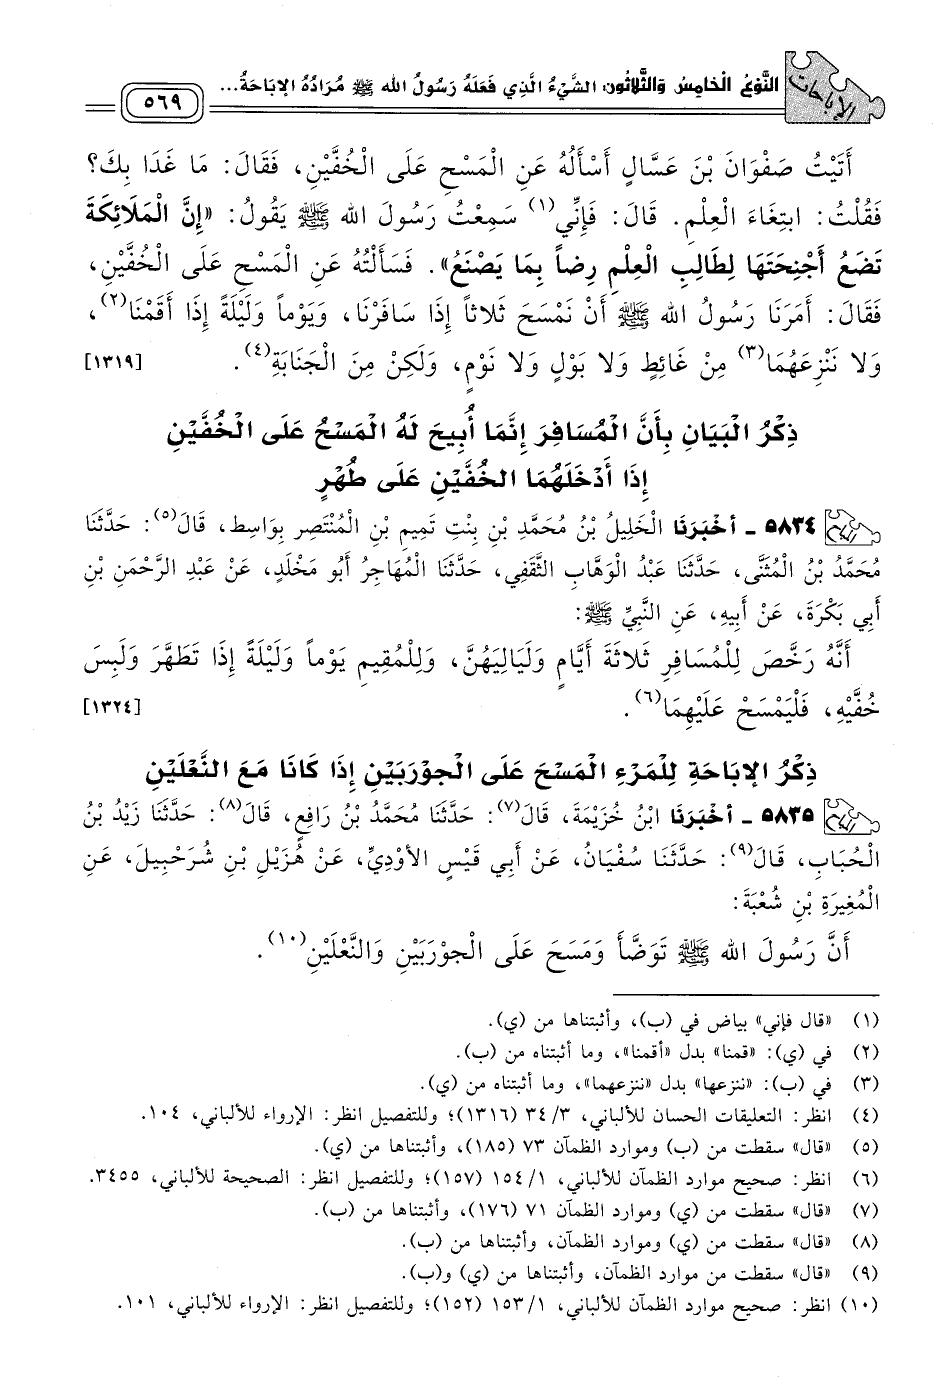 الإباحات
النَّوْعُ الْخَامِسُ وَالثَّلاثُون: الشَّيْءُ الَّذِي فَعَلَهُ رَسُولُ الله ﷺ مُرَادُهُ الإِبَاحَةُ...
٥٦٩
أَتَيْتُ صَفْوَانَ بْنَ عَسَّالٍ أَسْأَلُهُ عَنِ الْمَسْحِ عَلَى الْخُفَّيْنِ، فَقَالَ: مَا غَدَا بِكَ؟
فَقُلْتُ: ابتِغَاءَ الْعِلْمِ. قَالَ: فَإِنِّي(١) سَمِعْتُ رَسُولَ الله ﷺ يَقُولُ: «إِنَّ الْمَلَائِكَةَ
تَضَعُ أَجْنِحَتَهَا لِطَالِبِ الْعِلْمِ رِضاً بِمَا يَصْنَعُ». فَسَأَلْتُهُ عَنِ الْمَسْحِ عَلَى الْخُفَّيْنِ،
فَقَالَ: أَمَرَنَا رَسُولُ الله ﷺ أَنْ نَمْسَحَ ثَلاثاً إِذَا سَافَرْنَا، وَيَوْماً وَلَيْلَةً إِذَا أَقَمْنَا(٢)،
وَلا نَنْزِعَهُمَا(٣) مِنْ غَائِطٍ وَلا بَوْلٍ وَلا نَوْمٍ، وَلَكِنْ مِنَ الْجَنَابَةِ(٤). [١٣١٩]
ذِكْرُ الْبَيَانِ بِأَنَّ الْمُسَافِرَ إِنَّمَا أُبِيحَ لَهُ الْمَسْحُ عَلَى الْخُفَّيْنِ
إِذَا أَدْخَلَهُمَا الخُفَّيْنِ عَلَى طُهْرٍ
٥٨٣٤ - أَخْبَرَنَا الْخَلِيلُ بْنُ مُحَمَّدِ بْنِ بِنْتِ تَمِيمِ بْنِ الْمُنْتَصِرِ بِوَاسِط، قَالَ(٥): حَدَّثَنَا
مُحَمَّدُ بْنُ الْمُثَنَّى، حَدَّثَنَا عَبْدُ الْوَهَّابِ الثَّقَفِي، حَدَّثَنَا الْمُهَاجِرُ أَبُو مَخْلَدٍ، عَنْ عَبْدِ الرَّحْمَنِ بْنِ
أَبِي بَكْرَةَ، عَنْ أَبِيهِ، عَنِ النَّبِيِّ ﷺ:
أَنَّهُ رَخَّصَ لِلْمُسَافِرِ ثَلاثَةَ أَيَّامٍ وَلَيَالِيَهُنَّ، وَلِلْمُقِيمِ يَوْماً وَلَيْلَةً إِذَا تَطَهَّرَ وَلَبِسَ
خُفَّيْهِ، فَلْيَمْسَحْ عَلَيْهِمَا(٦). [١٣٢٤]
ذِكْرُ الإِبَاحَةِ لِلْمَرْءِ الْمَسْحَ عَلَى الْجَوْرَبَيْنِ إِذَا كَانَا مَعَ النَّعْلَيْنِ
٥٨٣٥ - أَخْبَرَنَا ابْنُ خُزَيْمَةَ، قَالَ(٧): حَدَّثَنَا مُحَمَّدُ بْنُ رَافِعٍ، قَالَ(٨): حَدَّثَنَا زَيْدُ بْنُ
الْحُبَابِ، قَالَ(٩): حَدَّثَنَا سُفْيَانُ، عَنْ أَبِي قَيْسٍ الأَوْدِيِّ، عَنْ هُزَيْلِ بْنِ شُرَحْبِيلَ، عَنِ
الْمُغِيرَةِ بْنِ شُعْبَةَ:
أَنَّ رَسُولَ الله ﷺ تَوَضَّأَ وَمَسَحَ عَلَى الْجَوْرَبَيْنِ وَالنَّعْلَيْنِ(١٠).
(١) «قال فإني» بياض في (ب)، وأثبتناها من (ي).
(٢) في (ي): «قمنا» بدل «أقمنا»، وما أثبتناه من (ب).
(٣) في (ب): «ننزعها» بدل «ننزعهما»، وما أثبتناه من (ي).
(٤) انظر: التعليقات الحسان للألباني، ٣/ ٣٤ (١٣١٦)؛ وللتفصيل انظر: الإرواء للألباني، ١٠٤.
(٥) «قال» سقطت من (ب) وموارد الظمآن ٧٣ (١٨٥)، وأثبتناها من (ي).
(٦) انظر: صحيح موارد الظمآن للألباني، ١/ ١٥٤ (١٥٧)؛ وللتفصيل انظر: الصحيحة للألباني، ٣٤٥٥.
(٧) «قال» سقطت من (ي) وموارد الظمآن ٧١ (١٧٦)، وأثبتناها من (ب).
(٨) «قال» سقطت من (ي) وموارد الظمآن، وأثبتناها من (ب).
(٩) «قال» سقطت من موارد الظمآن، وأثبتناها من (ي) و(ب).
(١٠) انظر: صحيح موارد الظمآن للألباني، ١/ ١٥٣ (١٥٢)؛ وللتفصيل انظر: الإرواء للألباني، ١٠١.